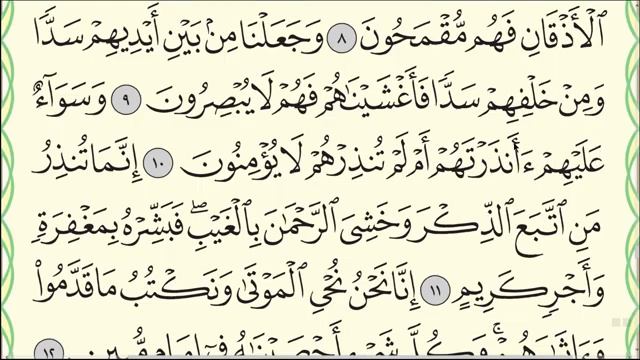 ٱلْأَذْقَانِ فَهُم مُّقْمَحُونَ ٨ وَجَعَلْنَا مِنۢ بَيْنِ أَيْدِيهِمْ سَدًّا
وَمِنْ خَلْفِهِمْ سَدًّا فَأَغْشَيْنَٰهُمْ فَهُمْ لَا يُبْصِرُونَ ٩ وَسَوَآءٌ
عَلَيْهِمْ ءَأَنذَرْتَهُمْ أَمْ لَمْ تُنذِرْهُمْ لَا يُؤْمِنُونَ ١٠ إِنَّمَا تُنذِرُ
مَنِ ٱتَّبَعَ ٱلذِّكْرَ وَخَشِىَ ٱلرَّحْمَٰنَ بِٱلْغَيْبِ ۖ فَبَشِّرْهُ بِمَغْفِرَةٍ
وَأَجْرٍ كَرِيمٍ ١١ إِنَّا نَحْنُ نُحْىِ ٱلْمَوْتَىٰ وَنَكْتُبُ مَا قَدَّمُوا۟
وَءَاثَٰرَهُمْ ۚ وَكُلَّ شَىْءٍ أَحْصَيْنَٰهُ فِىٓ إِمَامٍ مُّبِينٍ ١٢